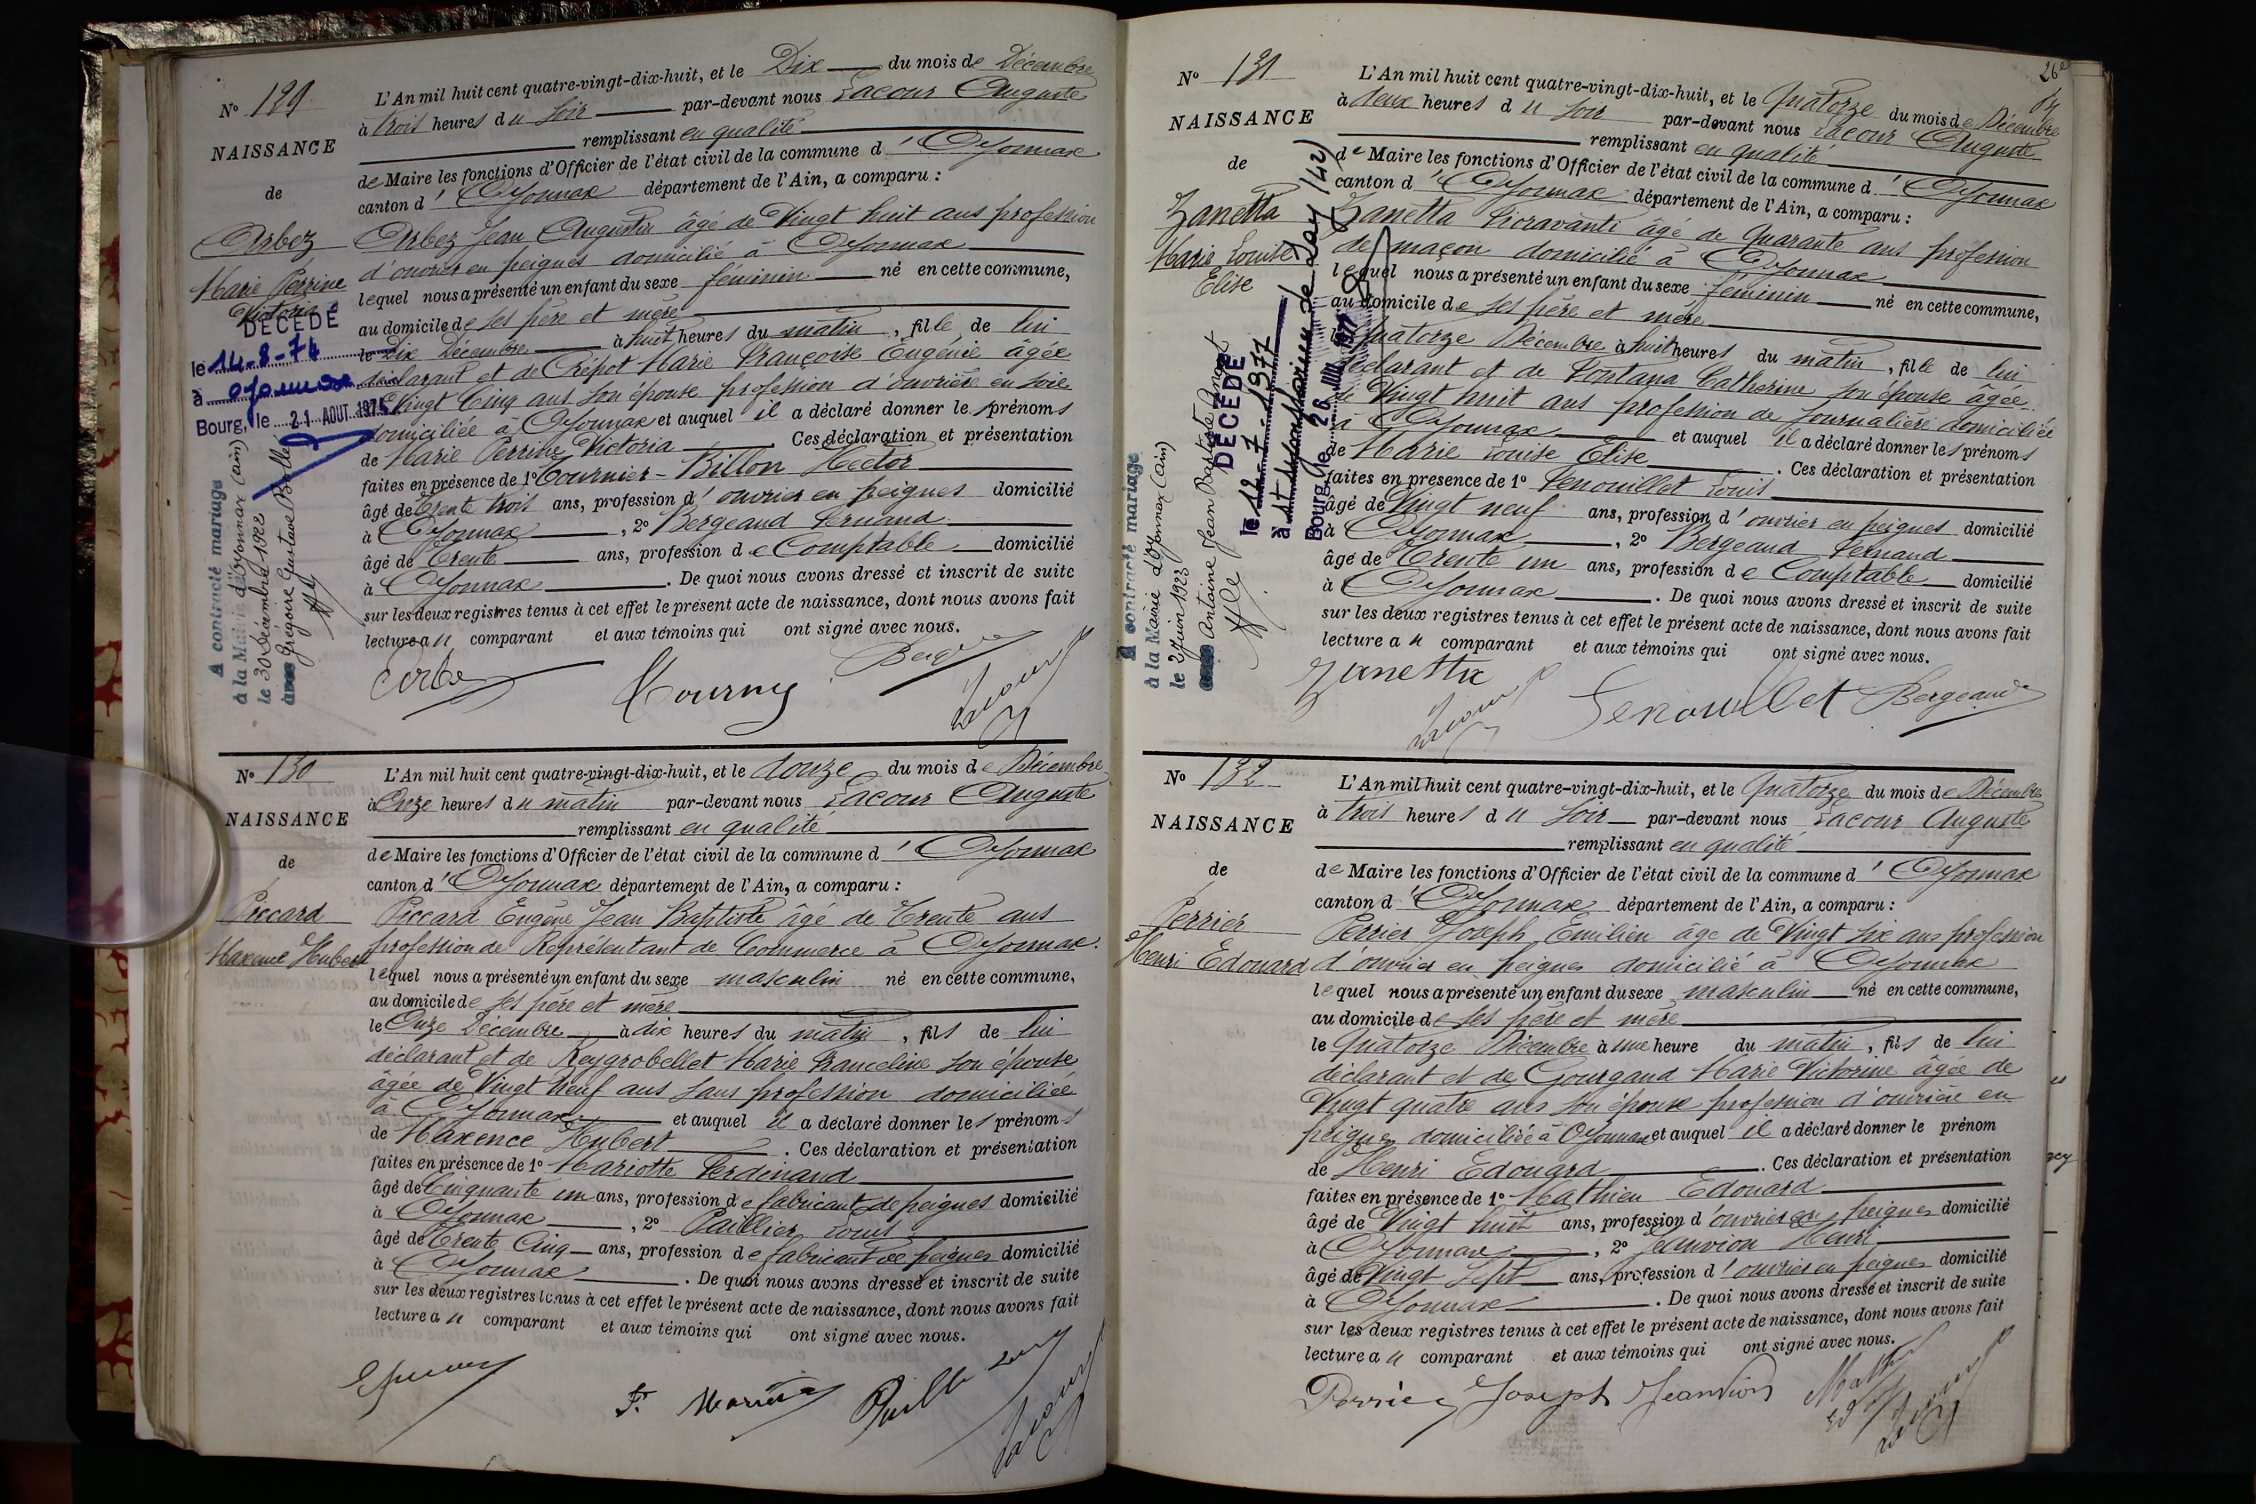 Nº 129
NAISSANCE
de
Arbez
Marie Perrine
Victoria
DÉCÉDÉ
le 14-8-74
à Oyonnax
Bourg, le 21 AOUT 1974
A contracté mariage
à la Mairie d'Oyonnax (Ain)
le 30 Décembre 1922
avec Grégoire Gustave
L'An mil huit cent quatre-vingt-dix-huit, et le Dix du mois de Décembre
à trois heures du soir par-devant nous Lacour Auguste
remplissant en qualité
de Maire les fonctions d'Officier de l'état civil de la commune d'Oyonnax
canton d'Oyonnax département de l'Ain, a comparu :
Arbez Jean Augustin âgé de Vingt huit ans profession
d'ouvrier en peignes domicilié à Oyonnax
lequel nous a présenté un enfant du sexe féminin né en cette commune,
au domicile de ses père et mère
le Dix Décembre à huit heures du matin, fille de lui
déclarant et de Crépot Marie Françoise Eugénie âgée
Vingt Cinq ans son épouse profession d'ouvrière en soie
domiciliée à Oyonnax et auquel il a déclaré donner les prénoms
de Marie Perrine Victoria. Ces déclaration et présentation
faites en présence de 1º Tournier-Billon Hector
âgé de trente trois ans, profession d'ouvrier en peignes domicilié
à Oyonnax, 2º Bergeaud Fernand
âgé de Trente ans, profession de Comptable domicilié
à Oyonnax. De quoi nous avons dressé et inscrit de suite
sur les deux registres tenus à cet effet le présent acte de naissance, dont nous avons fait
lecture au comparant et aux témoins qui ont signé avec nous.
Nº 130
NAISSANCE
de
Piccard
Maxence Hubert
L'An mil huit cent quatre-vingt-dix-huit, et le douze du mois de Décembre
à Onze heures du matin par-devant nous Lacour Auguste
remplissant en qualité
de Maire les fonctions d'Officier de l'état civil de la commune d'Oyonnax
canton d'Oyonnax département de l'Ain, a comparu :
Piccard Eugène Jean Baptiste âgé de Trente ans
profession de Représentant de Commerce à Oyonnax.
lequel nous a présenté un enfant du sexe masculin né en cette commune,
au domicile de ses père et mère
le Onze Décembre à dix heures du matin, fils de lui
déclarant et de Reygrobellet Marie Franceline son épouse
âgée de Vingt neuf ans sans profession domiciliée
à Oyonnax et auquel il a déclaré donner les prénoms
de Maxence Hubert. Ces déclaration et présentation
faites en présence de 1º Mariotte Ferdinand
âgé de Cinquante un ans, profession de fabricant de peignes domicilié
à Oyonnax, 2º Paillier Louis
âgé de Trente Cinq ans, profession de fabricant de peignes domicilié
à Oyonnax. De quoi nous avons dressé et inscrit de suite
sur les deux registres tenus à cet effet le présent acte de naissance, dont nous avons fait
lecture au comparant et aux témoins qui ont signé avec nous.
26e
Nº 131
NAISSANCE
de
Zanetta
Marie Louise
Elise
A contracté mariage
à la Mairie d'Oyonnax (Ain)
le 2 Juin 1923
avec Antoine Jean Baptiste
DÉCÉDÉ
le 12-7-1977
à St Symphorien de Lay (42)
Bourg, le 26 1977
L'An mil huit cent quatre-vingt-dix-huit, et le Quatorze du mois de Décembre
à deux heures du soir par-devant nous Lacour Auguste
remplissant en qualité
de Maire les fonctions d'Officier de l'état civil de la commune d'Oyonnax
canton d'Oyonnax département de l'Ain, a comparu :
Zanetta Fioravanti âgé de Quarante ans profession
de maçon domicilié à Oyonnax
lequel nous a présenté un enfant du sexe féminin né en cette commune,
au domicile de ses père et mère
le Quatorze Décembre à huit heures du matin, fille de lui
déclarant et de Fontana Catherine son épouse âgée
de Vingt huit ans profession de journalière domiciliée
à Oyonnax et auquel il a déclaré donner les prénoms
de Marie Louise Elise. Ces déclaration et présentation
faites en présence de 1º Fenouillet Louis
âgé de Vingt neuf ans, profession d'ouvrier en peignes domicilié
à Oyonnax, 2º Bergeaud Fernand
âgé de Trente un ans, profession de Comptable domicilié
à Oyonnax. De quoi nous avons dressé et inscrit de suite
sur les deux registres tenus à cet effet le présent acte de naissance, dont nous avons fait
lecture au comparant et aux témoins qui ont signé avec nous.
Zanetta
Fenouillet Bergeaud
Nº 132
NAISSANCE
de
Perrier
Henri Edouard
L'An mil huit cent quatre-vingt-dix-huit, et le Quatorze du mois de Décembre
à trois heures du soir par-devant nous Lacour Auguste
remplissant en qualité
de Maire les fonctions d'Officier de l'état civil de la commune d'Oyonnax
canton d'Oyonnax département de l'Ain, a comparu :
Perrier Joseph Emilien âgé de Vingt six ans profession
d'ouvrier en peignes domicilié à Oyonnax
lequel nous a présenté un enfant du sexe masculin né en cette commune,
au domicile de ses père et mère
le Quatorze Décembre à une heure du matin, fils de lui
déclarant et de Gourgand Marie Victorine âgée de
Vingt quatre ans son épouse profession d'ouvrière en
peignes domiciliée à Oyonnax et auquel il a déclaré donner le prénom
de Henri Edouard. Ces déclaration et présentation
faites en présence de 1º Mathieu Edouard
âgé de Vingt huit ans, profession d'ouvrier en peignes domicilié
à Oyonnax, 2º Jeanvion Henri
âgé de Vingt Sept ans, profession d'ouvrier en peignes domicilié
à Oyonnax. De quoi nous avons dressé et inscrit de suite
sur les deux registres tenus à cet effet le présent acte de naissance, dont nous avons fait
lecture au comparant et aux témoins qui ont signé avec nous.
Perrier Joseph Jeanvion